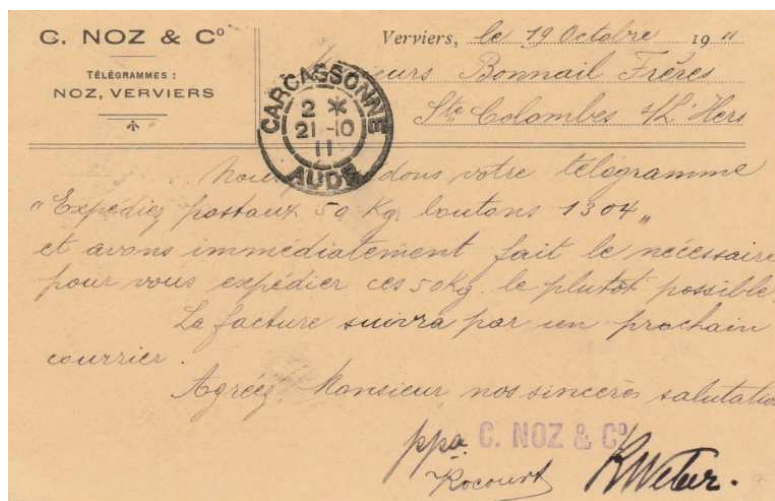 C. NOZ & Cº
TÉLÉGRAMMES :
NOZ, VERVIERS
Verviers, le 19 Octobre 1911
Bonnail Frères
Ste Colombes s/L'Hers
CARCASSONNE
2 *
21-10
11
AUDE
Nous votre télégramme
"Expédiez postaux 50 Kg. boutons 1304"
et avons immédiatement fait le nécessaire
pour vous expédier ces 50 Kg. le plutôt possible
La facture suivra par un prochain
courrier.
Agréez Monsieur nos sincères salutatio
ppa. C. NOZ & Cº
Rocourt